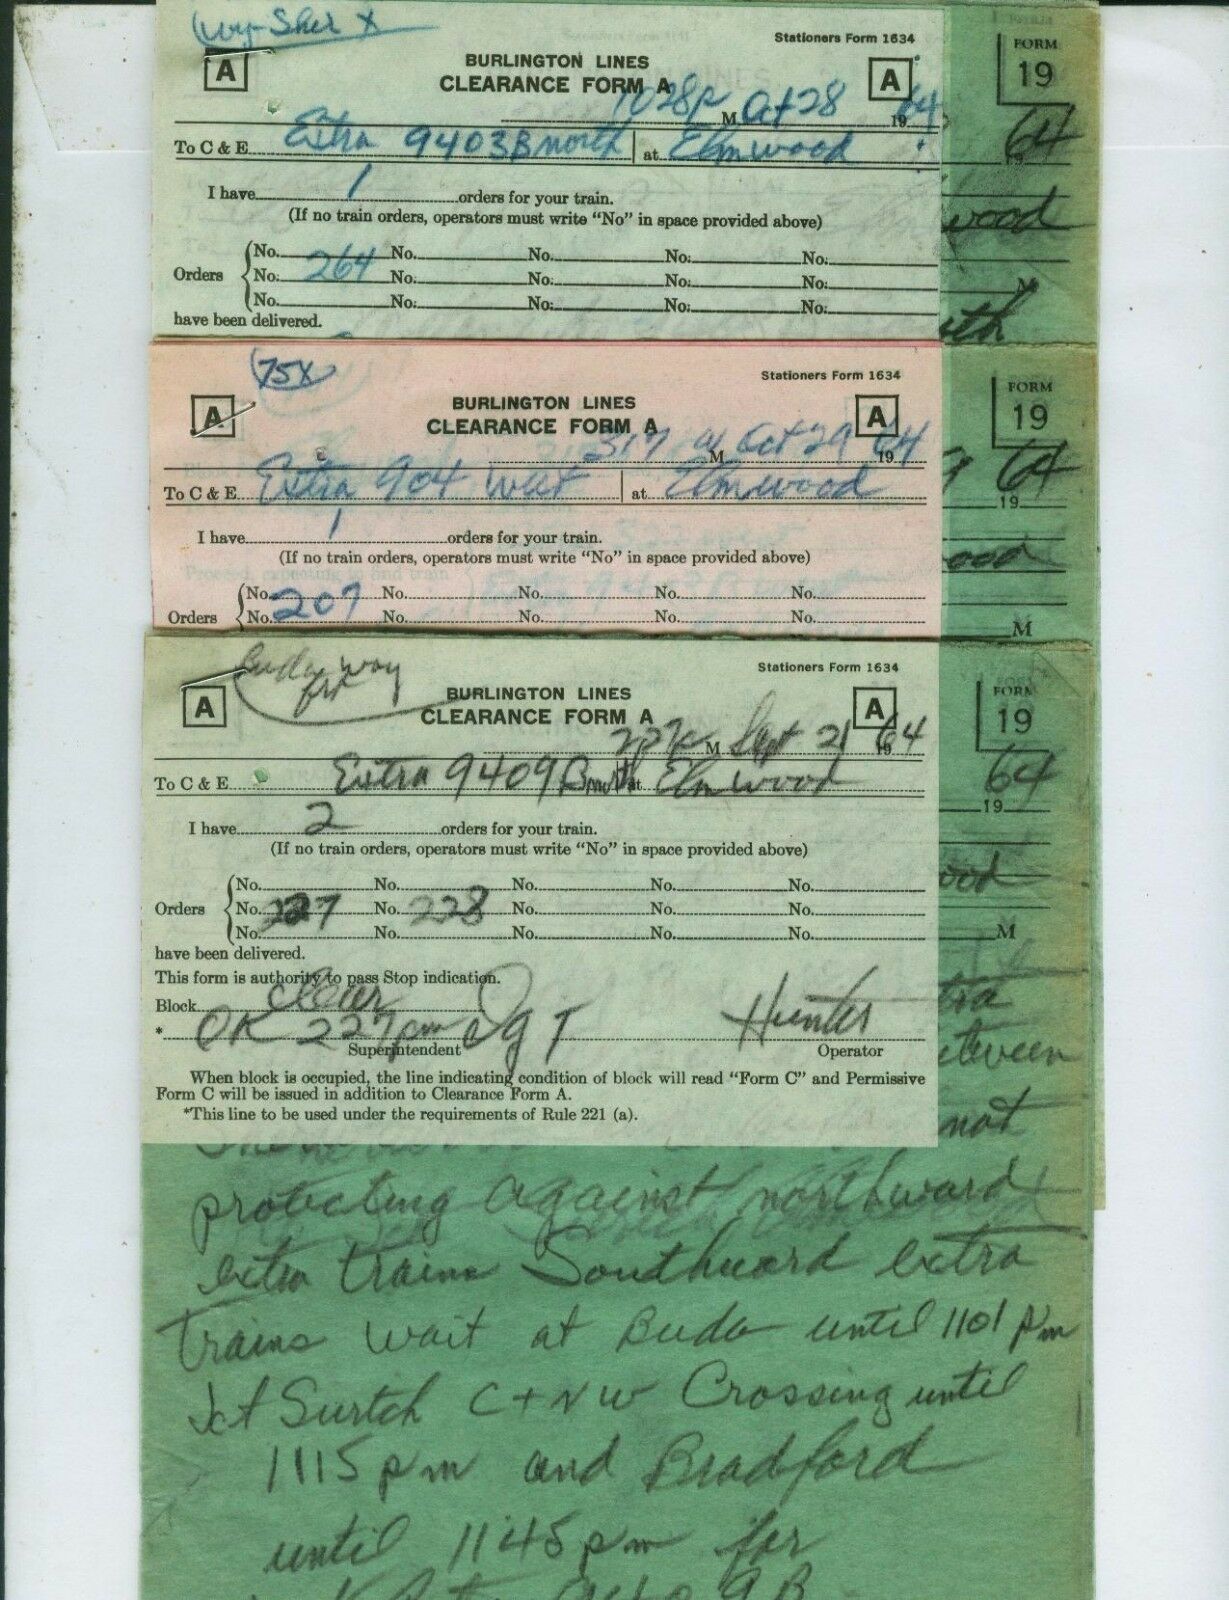 Stationers Form 1634
FORM
19
A BURLINGTON LINES A
CLEARANCE FORM A
1028p M Oct 28 1964
64
To C & E Extra 9403B north at Elmwood
I have 1 orders for your train.
wood
(If no train orders, operators must write "No" in space provided above)
No. No. No. No. No.
Orders No. 264 No. No. No. No.
M
No. No. No. No. No.
have been delivered.
75X
Stationers Form 1634
FORM
19
A BURLINGTON LINES A
CLEARANCE FORM A
317 a M Oct 29 1964
64
19
To C & E Extra 904 West at Elmwood
I have 1 orders for your train.
ood
(If no train orders, operators must write "No" in space provided above)
No. No. No. No. No.
Orders No. 207 No. No. No. No.
M
way
Stationers Form 1634
FORM
19
A BURLINGTON LINES A
CLEARANCE FORM A
227p M Sept 21 1964
64
19
To C & E Extra 9409B north at Elmwood
I have 2 orders for your train.
(If no train orders, operators must write "No" in space provided above)
ood
No. No. No. No. No.
Orders No. 227 No. 228 No. No. No.
No. No. No. No. No.
M
have been delivered.
This form is authority to pass Stop indication.
Block Clear
tra
* OK 227pm Hunter
Superintendent Operator
etween
When block is occupied, the line indicating condition of block will read "Form C" and Permissive
Form C will be issued in addition to Clearance Form A.
*This line to be used under the requirements of Rule 221 (a).
not
protecting against northward
extra trains Southward extra
trains wait at Buda until 1101 pm
C+NW Crossing until
1115 pm and Bradford
until 1145 pm for